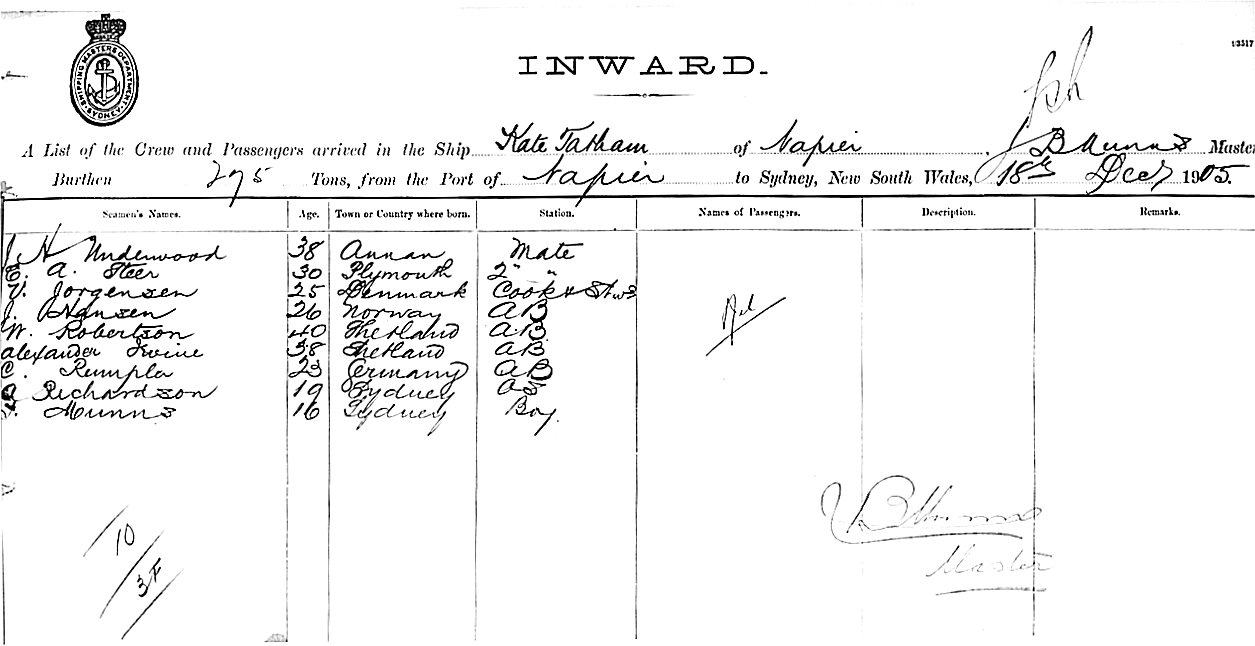 SHIPPING MASTERS DEPARTMENT SYDNEY
INWARD.
A List of the Crew and Passengers arrived in the Ship Kate Tatham of Napier J B Munns Master
Burthen 275 Tons, from the Port of Napier to Sydney, New South Wales, 18th Decr 1905.
Seamen's Names. Age. Town or Country where born. Station. Names of Passengers. Description. Remarks.
J H Underwood 38 Annan Mate
E. A. Steer 30 Plymouth 2" "
V. Jorgensen 25 Denmark Cook & Stwd
J. Hansen 26 Norway AB
W. Robertson 40 Shetland AB
Alexander Irvine 38 Shetland AB
C. Rumpla 23 Germany AB
Richardson 19 Sydney
Munns 16 Sydney Boy
Nil
J B Munns
Master
10
3F